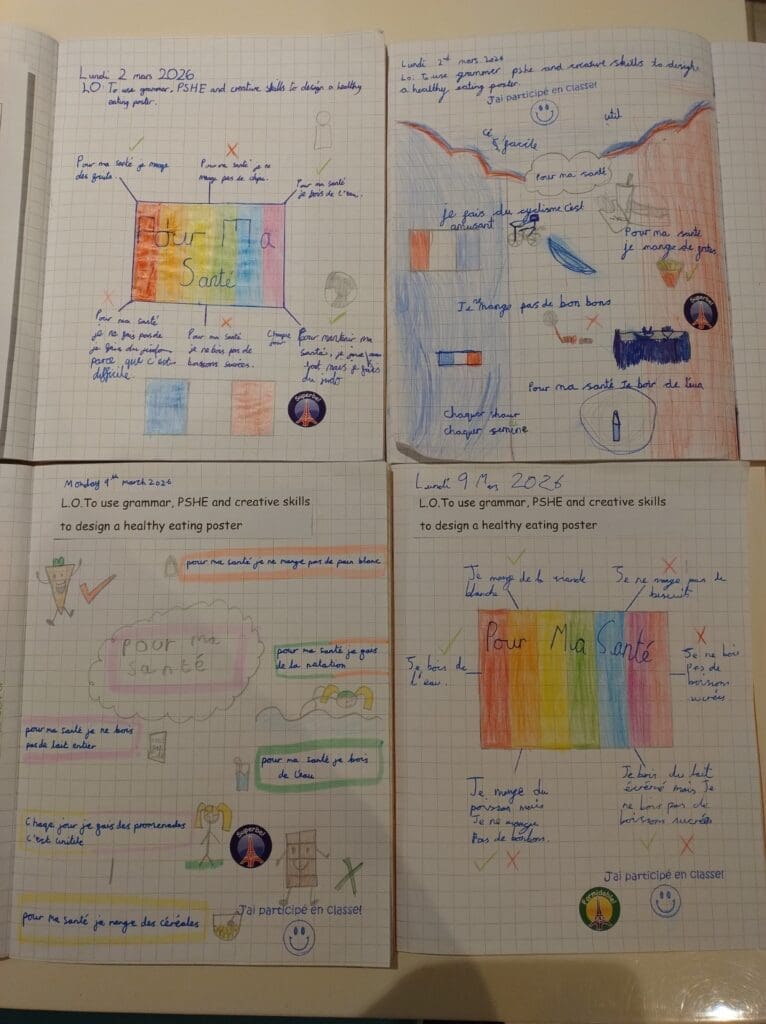 Lundi 2 mars 2026
LO: To use grammar, PSHE and creative skills to design a healthy
eating poster.
Pour ma santé je mange
des
Pour ma santé je ne
mange pas de
Pour ma santé
je bois de l'eau.
Pour Ma
Santé
Pour ma santé
je ne fais pas de
je fais du
parce que c'est
difficile.
Pour ma santé
je ne bois pas de
boissons sucrées.
Chaque
jour
Pour maintenir ma
santé, je joue au
foot mais je fais
du judo
Superbe!
Lundi 2nd mars 2026
Lo: To use grammer pshe and creative skills to design
a healthy eating poster.
J'ai participé en classe!
util
facile
Pour ma santé
je fais du cyclisme c'est
amusant
Pour ma santé
je mange de
Je ne mange pas de bon bons
Superbe!
Pour ma santé Je boir de l'eua
Chaquer
chaquer semene
Monday 9th march 2026
L.O.To use grammar, PSHE and creative skills
to design a healthy eating poster
pour ma santé je ne mange pas de pain blanc
pour ma
santé
pour ma santé je gais
de la natation
pour ma santé je ne bois
pas de lait entier
pour ma santé je bois
de l'eau
Chage jour je gais des promenades
c'est unitile
Superbe!
pour ma santé je mange des céréales
J'ai participé en classe!
Lundi 9 Mars 2026
L.O.To use grammar, PSHE and creative skills
to design a healthy eating poster
Je mange de la viande
blanche
Je ne mange pas de
biscuits
Pour Ma Santé
Je bois de
l'eau.
Je ne bois
pas de
boissons
sucrées
Je mange du
poisson mais
Je ne mange
Pas de bonbon.
Je bois du lait
écrémé mais Je
ne bois pas de
boissons sucrées
J'ai participé en classe!
Formidable!